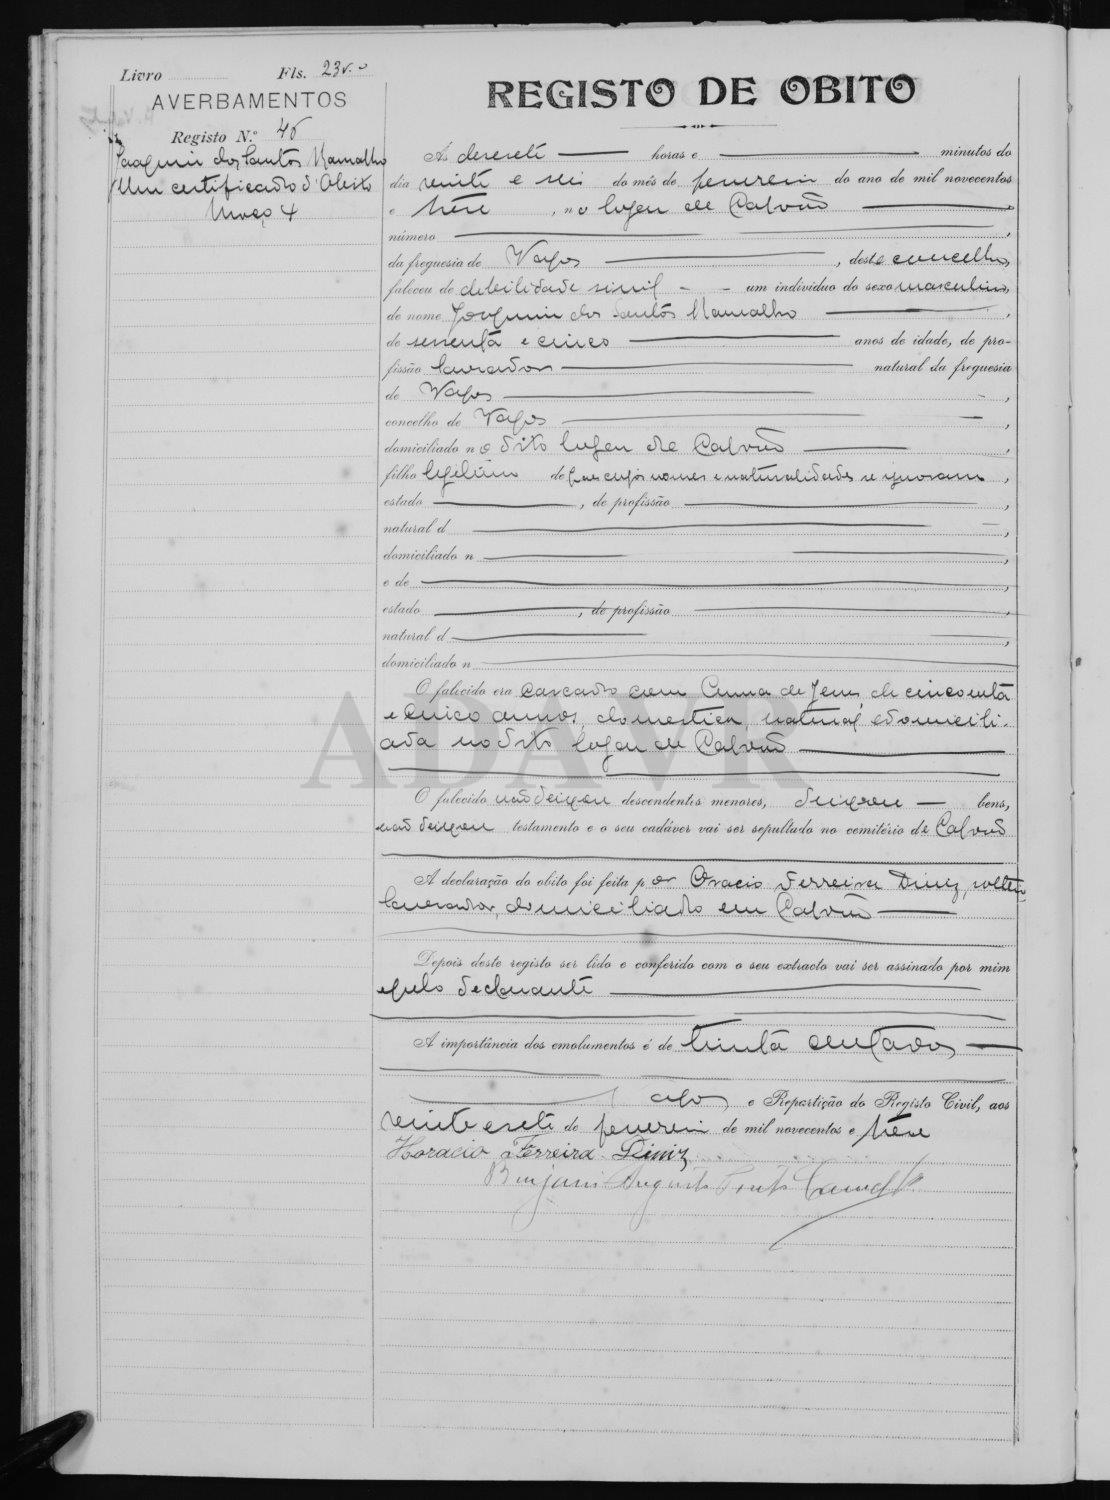 Livro Fls. 23v.o
AVERBAMENTOS
Registo N.º 46
Joaquim dos Santos Ramalho
Um certificado d'Obito
Março 4
REGISTO DE OBITO
Ás desesete horas e minutos do
dia vinte e seis do mês de fevereiro do ano de mil novecentos
e trêse, no logar de Calvão
número,
da freguesia de Vagos, deste concelho,
faleceu de debilidade sinil um individuo do sexo masculino,
de nome Joaquim dos Santos Ramalho,
de sessenta e cinco anos de idade, de pro-
fissão lavrador natural da freguesia
de Vagos,
concelho de Vagos,
domiciliado no dito logar de Calvão,
filho legitimo de paes cujos nomes e naturalidades se ignoram,
estado, de profissão,
natural d,
domiciliado n,
e de,
estado, de profissão,
natural d,
domiciliado n
O falecido era casado com Anna de Jesus, de cincoenta
e cinco annos, domestica, natural e domicili-
ada no dito logar de Calvão
O falecido não deixou descendentes menores, deixou bens,
não deixou testamento e o seu cadáver vai ser sepultado no cemitério de Calvão
A declaração do obito foi feita por Oracio Ferreira Diniz, solteiro
lavrador, domiciliado em Calvão
Depois deste registo ser lido e conferido com o seu extracto vai ser assinado por mim
e pelo declarante
A importância dos emolumentos é de trinta centavos
e Repartição do Registo Civil, aos
vinte e sete de fevereiro de mil novecentos e trêse
Horacio Ferreira Diniz
Benjamim Augusto
ADAVR